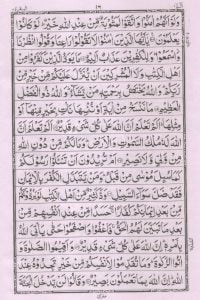 ١٦
وَلَوْ اَنَّهُمْ اٰمَنُوْا وَاتَّقَوْا لَمَثُوْبَةٌ مِّنْ عِنْدِ اللّٰهِ خَيْرٌ لَوْ كَانُوْا
يَعْلَمُوْنَ يٰۤاَيُّهَا الَّذِيْنَ اٰمَنُوْا لَا تَقُوْلُوْا رَاعِنَا وَقُوْلُوا انْظُرْنَا
وَاسْمَعُوْا وَلِلْكٰفِرِيْنَ عَذَابٌ اَلِيْمٌ مَا يَوَدُّ الَّذِيْنَ كَفَرُوْا مِنْ
اَهْلِ الْكِتٰبِ وَلَا الْمُشْرِكِيْنَ اَنْ يُّنَزَّلَ عَلَيْكُمْ مِّنْ خَيْرٍ مِّنْ
رَّبِّكُمْ وَاللّٰهُ يَخْتَصُّ بِرَحْمَتِهٖ مَنْ يَّشَآءُ وَاللّٰهُ ذُو الْفَضْلِ
الْعَظِيْمِ مَا نَنْسَخْ مِنْ اٰيَةٍ اَوْ نُنْسِهَا نَاْتِ بِخَيْرٍ مِّنْهَاۤ اَوْ
مِثْلِهَا اَلَمْ تَعْلَمْ اَنَّ اللّٰهَ عَلٰى كُلِّ شَيْءٍ قَدِيْرٌ اَلَمْ تَعْلَمْ اَنَّ
اللّٰهَ لَهٗ مُلْكُ السَّمٰوٰتِ وَالْاَرْضِ وَمَا لَكُمْ مِّنْ دُوْنِ اللّٰهِ
مِنْ وَّلِيٍّ وَّلَا نَصِيْرٍ اَمْ تُرِيْدُوْنَ اَنْ تَسْـَٔلُوْا رَسُوْلَكُمْ
كَمَا سُئِلَ مُوْسٰى مِنْ قَبْلُ وَمَنْ يَّتَبَدَّلِ الْكُفْرَ بِالْاِيْمَانِ
فَقَدْ ضَلَّ سَوَآءَ السَّبِيْلِ وَدَّ كَثِيْرٌ مِّنْ اَهْلِ الْكِتٰبِ لَوْ يَرُدُّوْنَكُمْ
مِّنْ بَعْدِ اِيْمَانِكُمْ كُفَّارًا حَسَدًا مِّنْ عِنْدِ اَنْفُسِهِمْ مِّنْ
بَعْدِ مَا تَبَيَّنَ لَهُمُ الْحَقُّ فَاعْفُوْا وَاصْفَحُوْا حَتّٰى يَاْتِيَ اللّٰهُ
بِاَمْرِهٖ اِنَّ اللّٰهَ عَلٰى كُلِّ شَيْءٍ قَدِيْرٌ وَاَقِيْمُوا الصَّلٰوةَ وَ
اٰتُوا الزَّكٰوةَ وَمَا تُقَدِّمُوْا لِاَنْفُسِكُمْ مِّنْ خَيْرٍ تَجِدُوْهُ عِنْدَ
اللّٰهِ اِنَّ اللّٰهَ بِمَا تَعْمَلُوْنَ بَصِيْرٌ وَقَالُوْا لَنْ يَّدْخُلَ الْجَنَّةَ